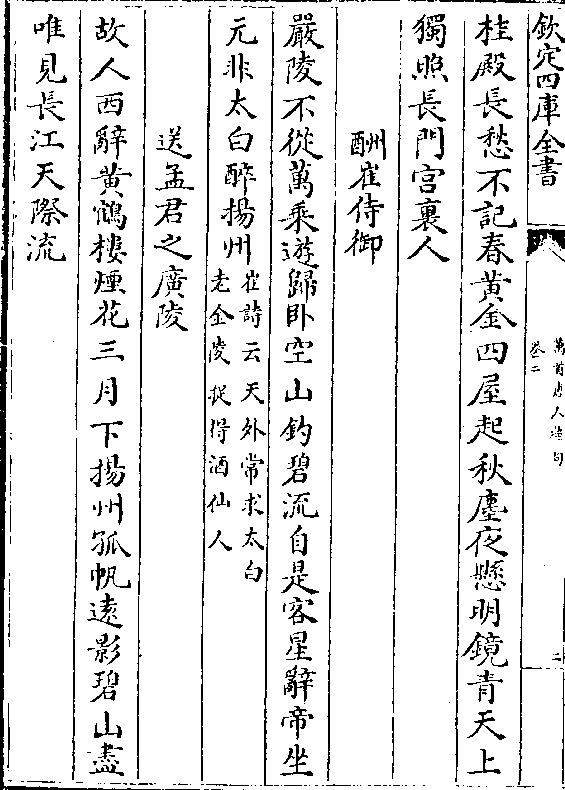 欽定四庫全書
萬首唐人絶句
卷二
二
桂殿長愁不記春黄金四屋起秋塵夜懸明鏡青天上
獨照長門宫裏人
酬崔侍御
嚴陵不從萬乗遊歸卧空山釣碧流自是客星辭帝坐
元非太白醉揚州
崔詩云天外常求太白
老金陵捉得酒仙人
送孟君之廣陵
故人西辭黄鶴樓煙花三月下揚州孤帆逺影碧山盡
唯見長江天際流